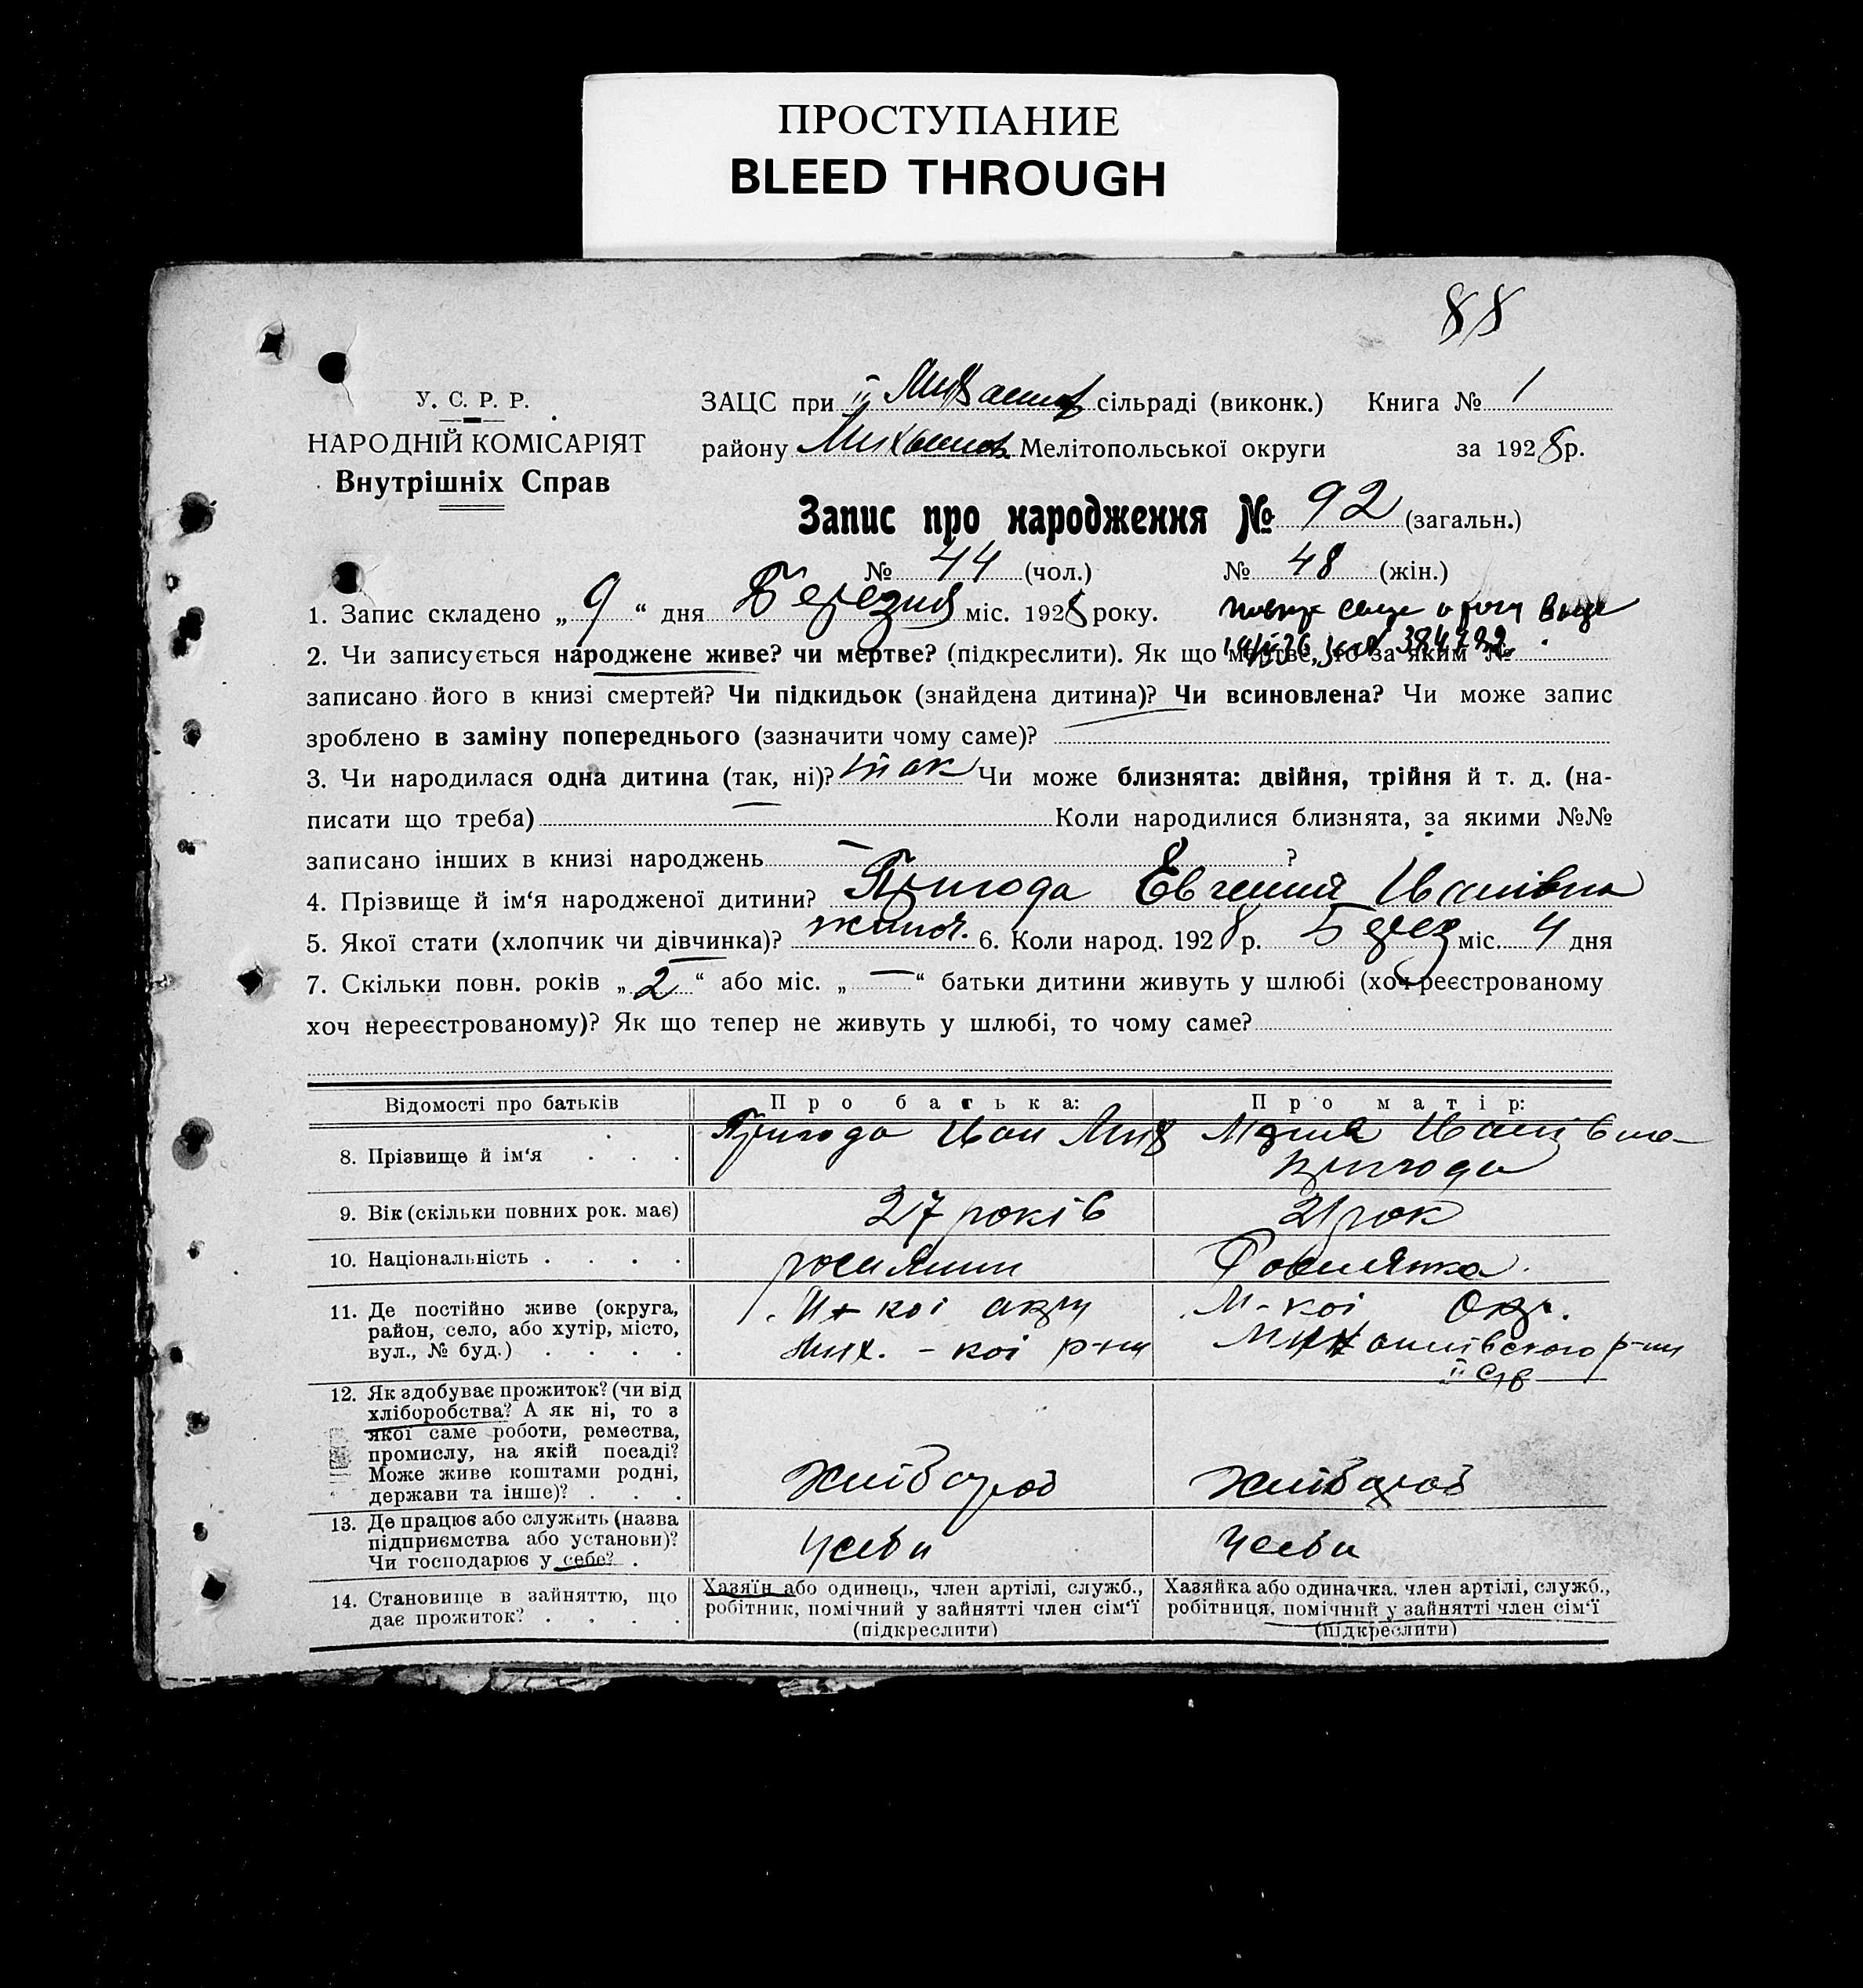 ПРОСТУПАНИЕ
BLEED THROUGH
88
У. С. Р. Р.
НАРОДНІЙ КОМІСАРІЯТ
Внутрішніх Справ
ЗАЦС при ІІ Михайлів сільраді (виконк.) Книга № 1
району Михайлів. Мелітопольської округи за 1928 р.
Запис про народження № 92 (загальн.)
№ 44 (чол.) № 48 (жін.)
1. Запис складено „ 9 “ дня Березня міс. 1928 року.
2. Чи записується народжене живе? чи мертве? (підкреслити). Як що мертве, то за яким №
записано його в книзі смертей? Чи підкидьок (знайдена дитина)? Чи всиновлена? Чи може запис
зроблено в заміну попереднього (зазначити чому саме)?
3. Чи народилася одна дитина (так, ні)? так Чи може близнята: двійня, трійня й т. д. (на-
писати що треба) Коли народилися близнята, за якими №№
записано інших в книзі народжень — ?
4. Прізвище й ім‘я народженої дитини? Пригода Евгения Іванівна
5. Якої стати (хлопчик чи дівчинка)? жіноч. 6. Коли народ. 1928 р. Берез міс. 4 дня
7. Скільки повн. років „ 2 “ або міс. „ — “ батьки дитини живуть у шлюбі (хоч реєстрованому
хоч нереєстрованому)? Як що тепер не живуть у шлюбі, то чому саме?
Відомості про батьків Про батька: Про матір:
8. Прізвище й ім‘я . . . Пригода Иван Мих Мария Иванівна
Пригода
9. Вік (скільки повних рок. має) 27 років 21 рок
10. Національність . . . . росиянин Росиянка.
11. Де постійно живе (округа,
район, село, або хутір, місто,
вул., № буд.) . . . .
М-кої окру
Мих. - кої р-ну
М-кої Окр.
Михайлівского р-ну
ІІ с/в
12. Як здобуває прожиток? (чи від
хліборобства? А як ні, то з
якої саме роботи, ремества,
промислу, на якій посаді?
Може живе коштами родні,
держави та інше)? . . .
Хлібороб Хлібороб
13. Де працює або служить (назва
підприємства або установи)?
Чи господарює у себе? .
У себи У себи
14. Становище в зайняттю, що
дає прожиток? . . . .
Хазяїн або одинець, член артілі, служб.,
робітник, помічний у зайнятті член сім‘ї
(підкреслити)
Хазяйка або одиначка, член артілі, служб.,
робітниця, помічний у зайнятті член сім‘ї
(підкреслити)